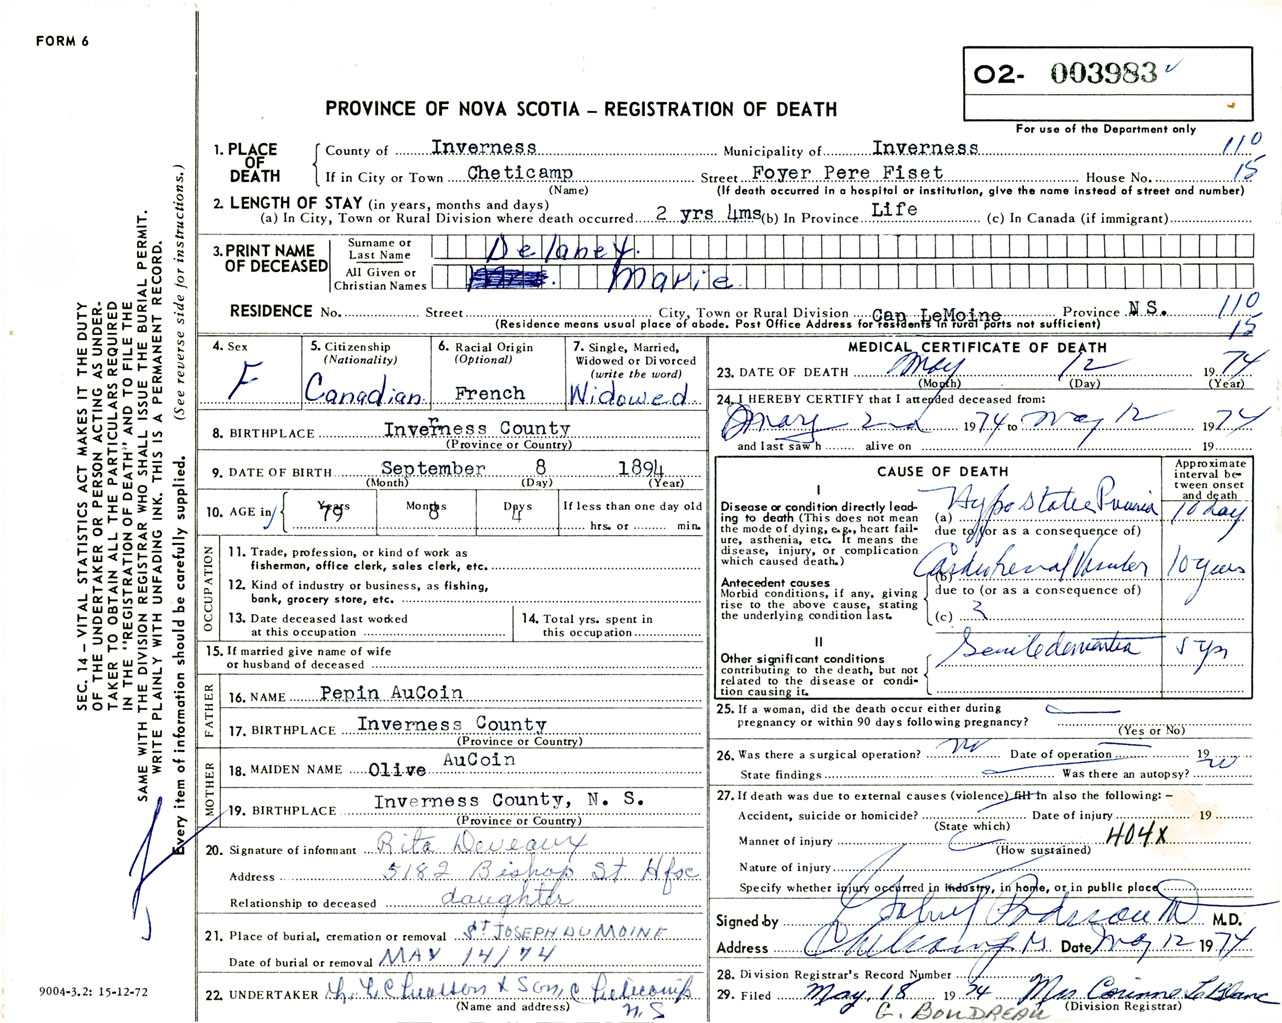 FORM 6
O2- 003983
For use of the Department only
PROVINCE OF NOVA SCOTIA – REGISTRATION OF DEATH
1. PLACE OF DEATH
County of Inverness Municipality of Inverness 110
If in City or Town Cheticamp Street Foyer Pere Fiset House No. 15
(Name) (If death occurred in a hospital or institution, give the name instead of street and number)
2. LENGTH OF STAY (in years, months and days)
(a) In City, Town or Rural Division where death occurred 2 yrs 4ms (b) In Province Life (c) In Canada (if immigrant)
3. PRINT NAME OF DECEASED
Surname or Last Name Delaney.
All Given or Christian Names Marie
RESIDENCE No. Street City, Town or Rural Division Cap LeMoine Province NS. 110
(Residence means usual place of abode. Post Office Address for residents in rural parts not sufficient) 15
4. Sex F
5. Citizenship (Nationality) Canadian
6. Racial Origin (Optional) French
7. Single, Married, Widowed or Divorced (write the word) Widowed
8. BIRTHPLACE Inverness County
(Province or Country)
9. DATE OF BIRTH September 8 1894
(Month) (Day) (Year)
10. AGE in Years 79 Months 8 Days 4 If less than one day old hrs. or min.
OCCUPATION
11. Trade, profession, or kind of work as fisherman, office clerk, sales clerk, etc.
12. Kind of industry or business, as fishing, bank, grocery store, etc.
13. Date deceased last worked at this occupation
14. Total yrs. spent in this occupation
15. If married give name of wife or husband of deceased
FATHER
16. NAME Pepin AuCoin
17. BIRTHPLACE Inverness County
(Province or Country)
MOTHER
18. MAIDEN NAME Olive AuCoin
19. BIRTHPLACE Inverness County, N. S.
(Province or Country)
20. Signature of informant Rita Deveaux
Address 5182 Bishop St Hfx
Relationship to deceased daughter
21. Place of burial, cremation or removal ST JOSEPH DU MOINE
Date of burial or removal MAY 14/74
22. UNDERTAKER & Son, Cheticamp
(Name and address) N.S
MEDICAL CERTIFICATE OF DEATH
23. DATE OF DEATH May 12 1974
(Month) (Day) (Year)
24. I HEREBY CERTIFY that I attended deceased from:
May 2nd 1974 to May 12 1974
and last saw h alive on 19
CAUSE OF DEATH
Approximate interval between onset and death
I
Disease or condition directly leading to death (This does not mean the mode of dying, e.g., heart failure, asthenia, etc. It means the disease, injury, or complication which caused death.)
(a) Hypostatic 10 day
due to (or as a consequence of)
Antecedent causes
Morbid conditions, if any, giving rise to the above cause, stating the underlying condition last.
(b) Cardiorenal Vascular 10 years
due to (or as a consequence of)
(c) 2
II
Other significant conditions contributing to the death, but not related to the disease or condition causing it.
Senile dementia 5 yrs
25. If a woman, did the death occur either during pregnancy or within 90 days following pregnancy?
(Yes or No)
26. Was there a surgical operation? no Date of operation 19
State findings Was there an autopsy? no
27. If death was due to external causes (violence) fill in also the following: –
Accident, suicide or homicide? Date of injury 19
(State which)
Manner of injury 404X
(How sustained)
Nature of injury
Specify whether injury occurred in industry, in home, or in public place
Signed by M.D.
Address Date May 12 1974
28. Division Registrar's Record Number
29. Filed May. 18 1974 Mrs Corinne LeBlanc
(Division Registrar)
G. BOUDREAU
SEC. 14 – VITAL STATISTICS ACT MAKES IT THE DUTY
OF THE UNDERTAKER OR PERSON ACTING AS UNDER-
TAKER TO OBTAIN ALL THE PARTICULARS REQUIRED
IN THE "REGISTRATION OF DEATH" AND TO FILE THE
SAME WITH THE DIVISION REGISTRAR WHO SHALL ISSUE THE BURIAL PERMIT.
WRITE PLAINLY WITH UNFADING INK. THIS IS A PERMANENT RECORD.
Every item of information should be carefully supplied. (See reverse side for instructions.)
9004-3.2: 15-12-72